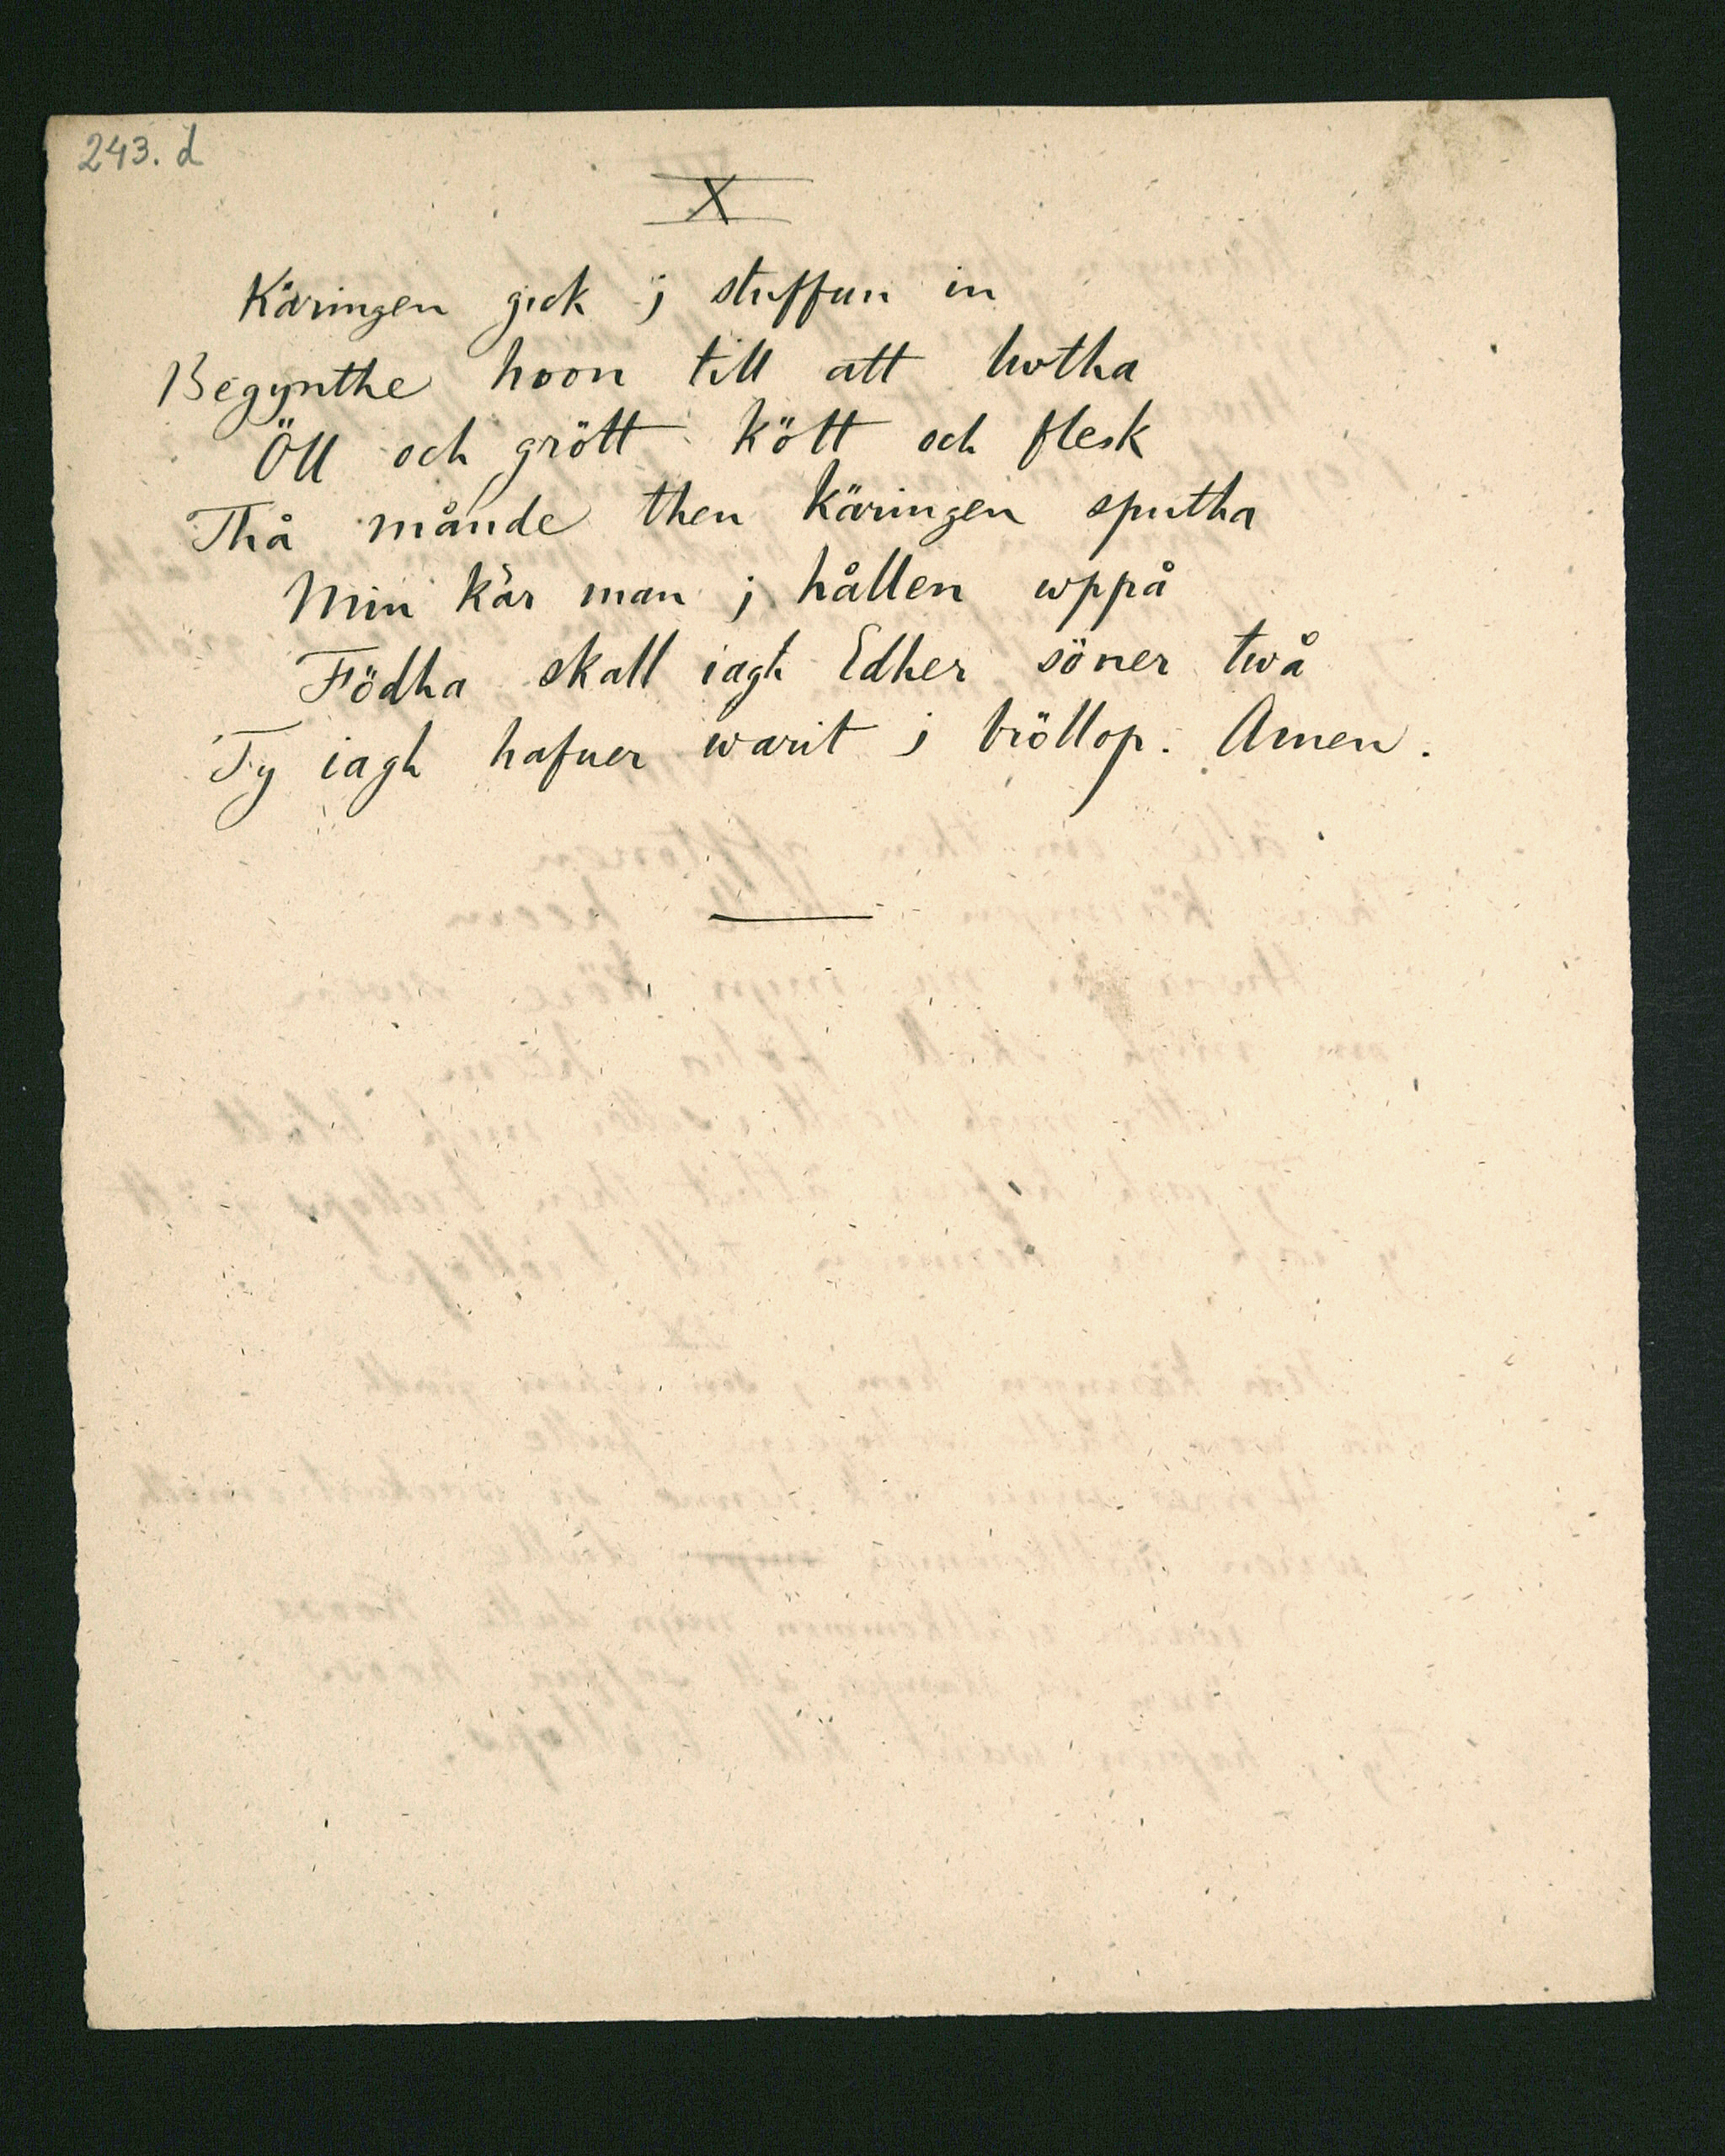 243. d
X
Käringen gick j stuffun in
Begynthe hoon till att hotha
Öll och grött kött och flesk
Thå månde then käringen sputha
Min kär man j hållen uppå
Födha skall iagh Edher söner twå
Ty iagh hafuer warit j bröllop. Amen.